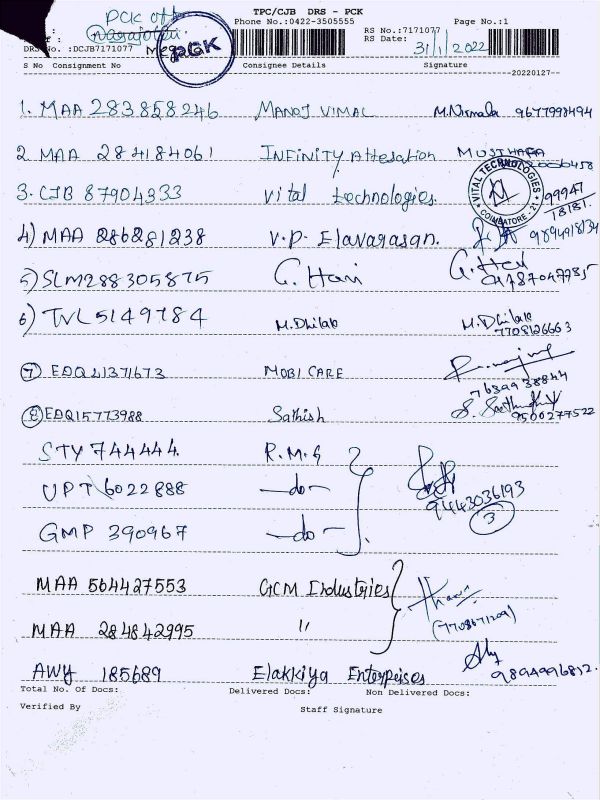 TPC/CJB DRS - PCK
PCK off
Phone No.:0422-3505555 Page No.:1
RS No.:7171077
RS Date: 31/1/2022
DRS No. :DCJB7171077
PGK
S No Consignment No Consignee Details Signature
20220127
1. MAA 283858246 MANOJ VIMAL M.Nirmala 9677998494
2 MAA 284184061 INFINITY Attesation MUSTHAFA
3. CJB 87904333 Vital technologies. VITAL TECHNOLOGIES COIMBATORE - 21 99947 18181.
4) MAA 286281238 V.P. Elavarasan.
5) SLM288305875 G. Hari G. Hari
6) TVL5149784 M.Dhilak M.Dhilak 7708126663
7 EDQ21371673 MOBI CARE 7639938844
8 EDQ15773988 Sathish 9500277522
STY 744444. R.M.G
UPT 6022888 -do- 9443036193
GMP 390967 -do- 3
MAA 564427553 GCM Industries
MAA 284842995 " (7708671209)
AWY 185689 Elakkiya Enterpeises 9894996812.
Total No. Of Docs: Delivered Docs: Non Delivered Docs:
Verified By Staff Signature